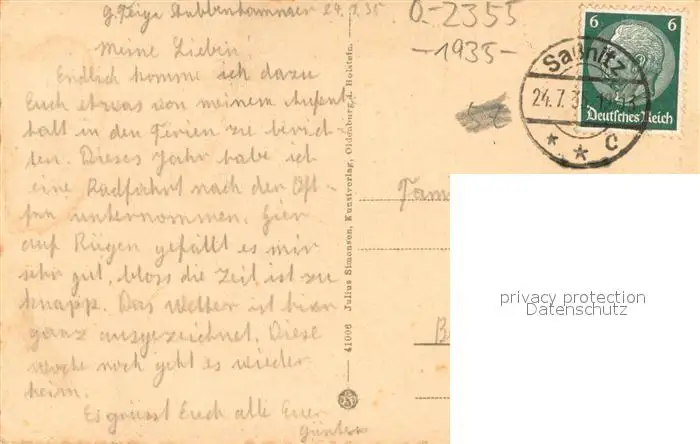 Stubbenkammer 24.7.35
Meine Lieben!
Endlich komme ich dazu
Euch etwas von meinem Aufent
halt in den Ferien zu berich-
ten. Dieses Jahr habe ich
eine Radfahrt nach der Ost-
see unternommen. Hier
auf Rügen gefällt es mir
sehr gut, bloss die Zeit ist zu
knapp. Das Wetter ist hier
ganz ausgezeichnet. Diese
Woche noch geht es wieder
heim.
Es grüsst Euch alle Euer
Günter
41006 Julius Simonsen, Kunstverlag, Oldenburg i. Holstein.
0-2355
-1935-
6 6
Deutsches Reich
Saßnitz
24.7.3
* * C
Fam
B
privacy protection
Datenschutz